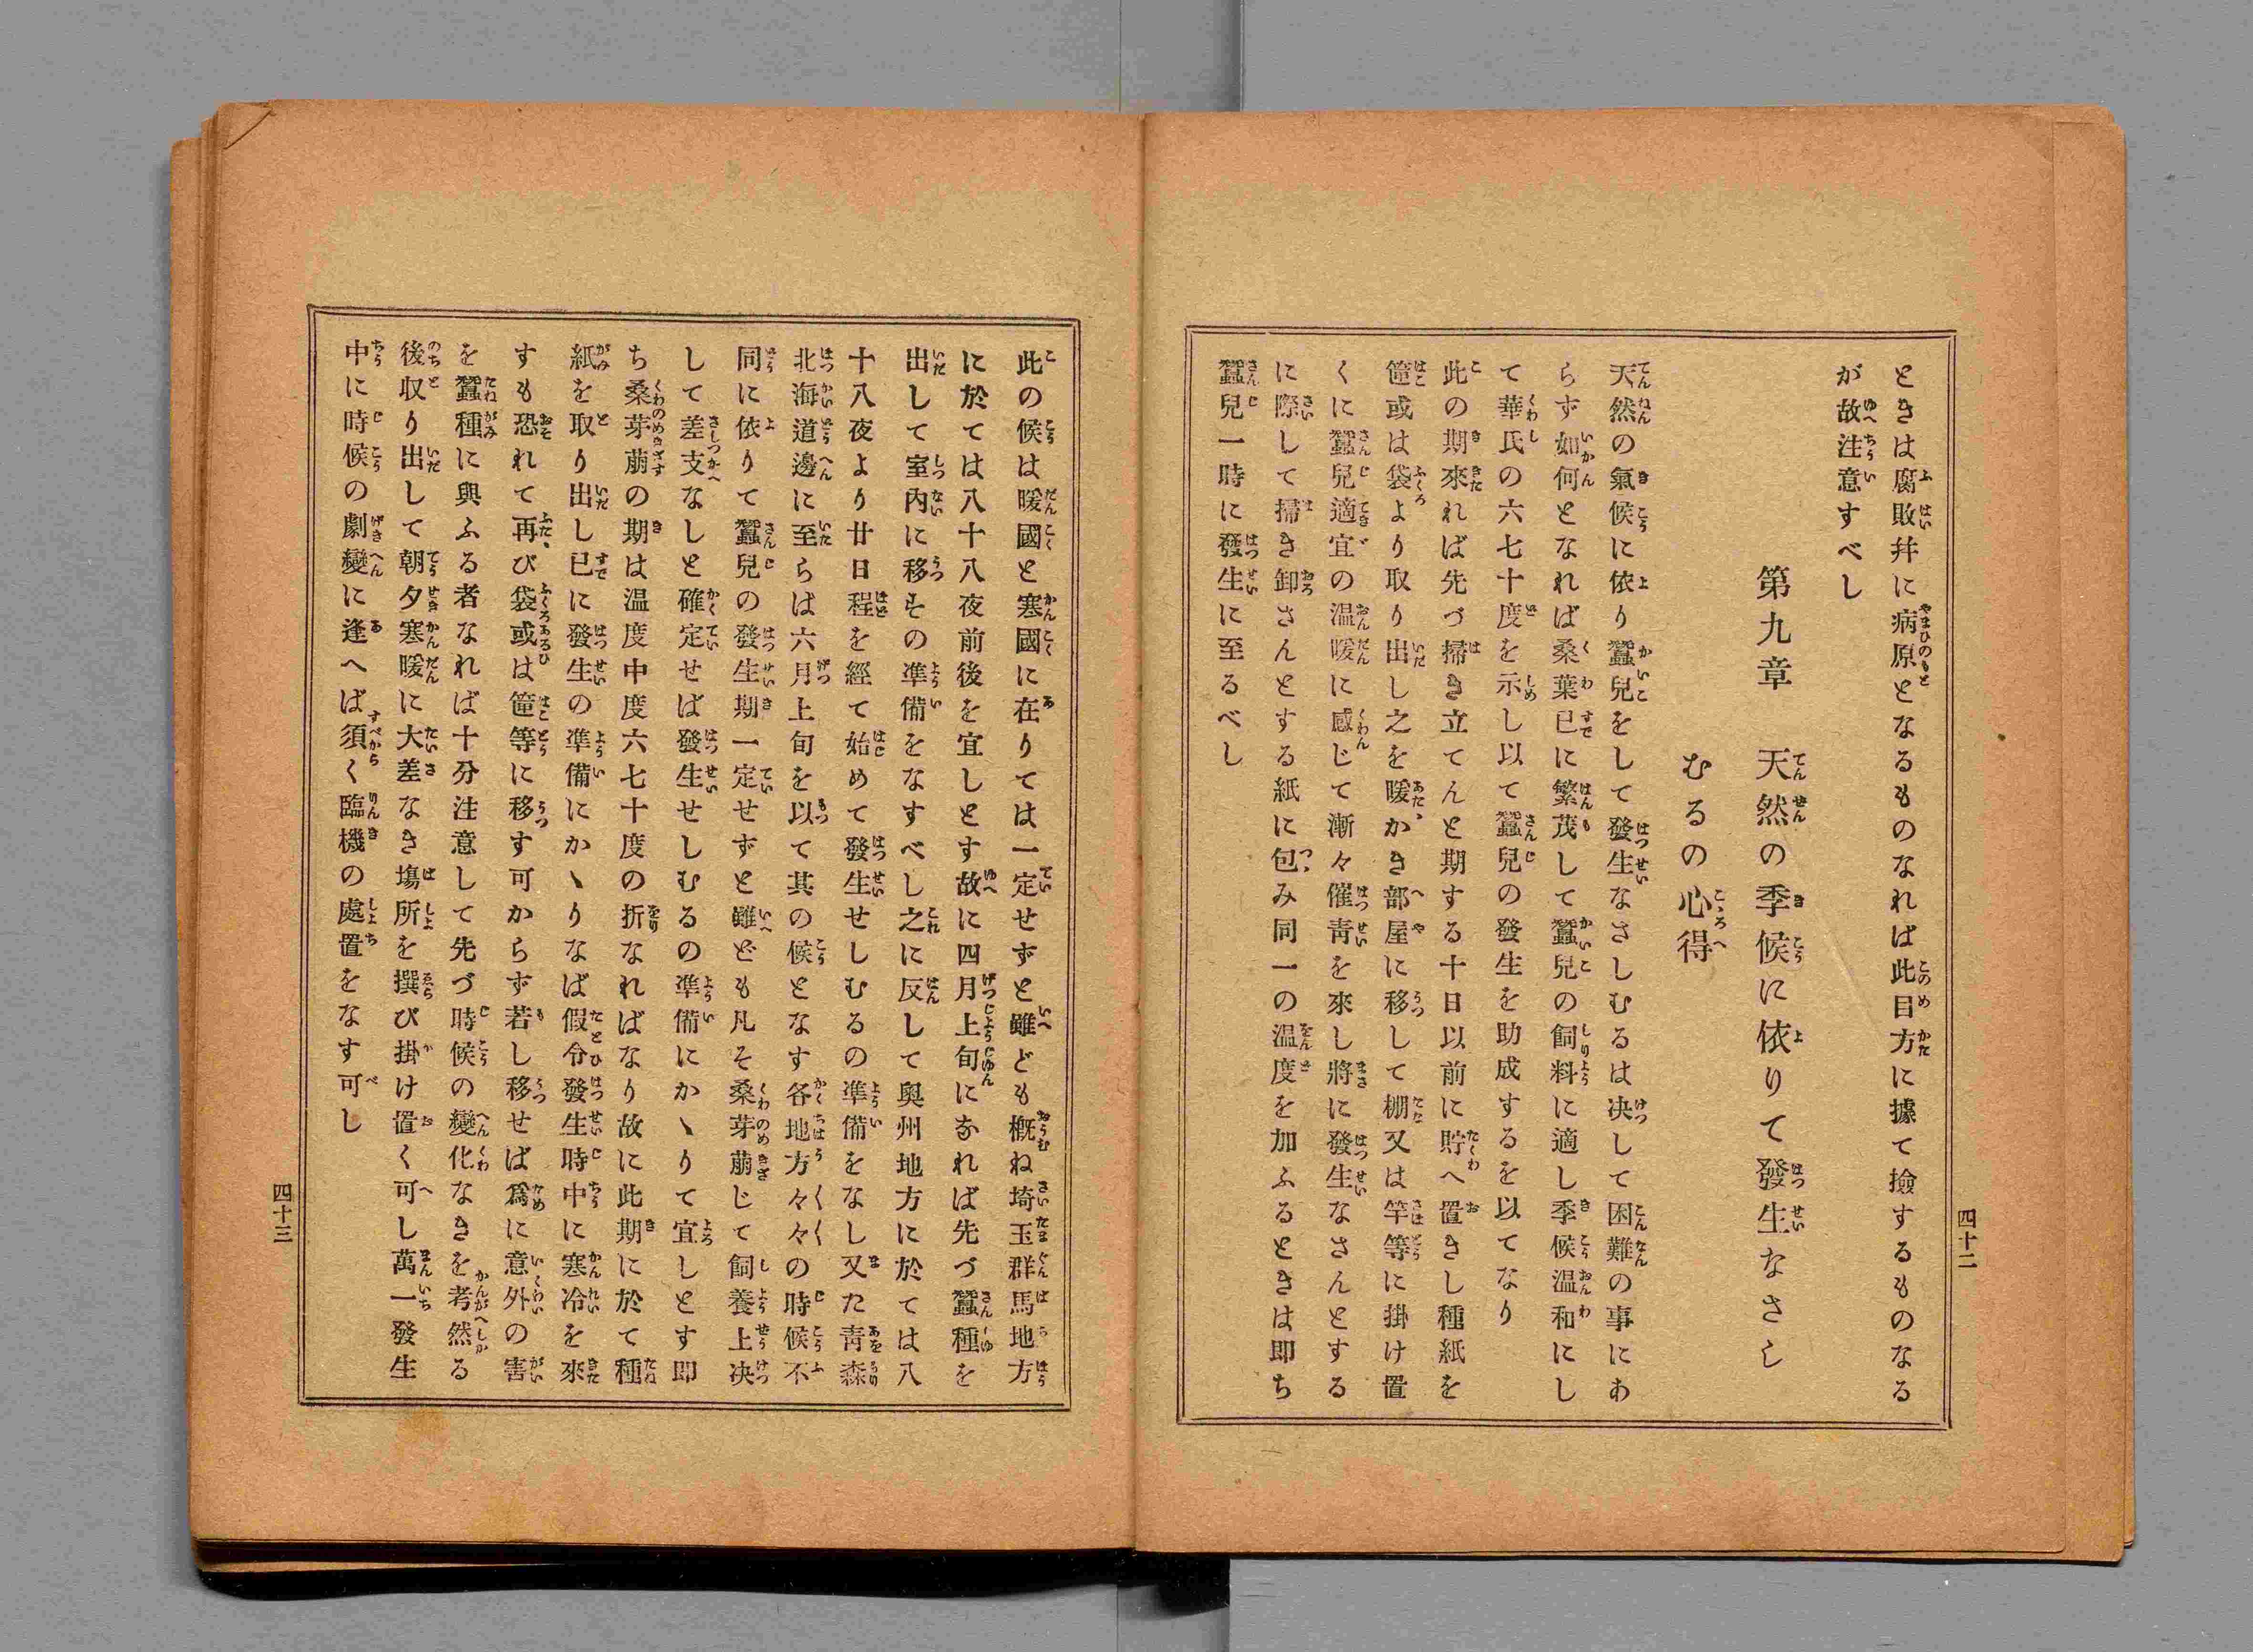 ときは腐敗幷に病原となるものなれば此目方に據て撿するものなる
が故注意すべし
第九章 天然の季候に依りて發生なさし
むるの心得
天然の氣候に依り蠶兒をして發生なさしむるは决して困難の事にあ
らず如何となれば桑葉已に繁茂して蠶兒の飼料に適し季候温和にし
て華氏の六七十度を示し以て蠶兒の發生を助成するを以てなり
此の期來れば先づ掃き立てんと期する十日以前に貯へ置きし種紙を
筺或は袋より取り出し之を暖かき部屋に移して棚又は竿等に掛け置
くに蠶兒適宜の温暖に感じて漸々催靑を來し將に發生なさんとする
に際して掃き卸さんとする紙に包み同一の温度を加ふるときは即ち
蠶兒一時に發生に至るべし
四十二
此の候は暖國と寒國に在りては一定せずと雖ども槪ね埼玉群馬地方
に於ては八十八夜前後を宜しとす故に四月上旬になれば先づ蠶種を
出して室內に移その凖備をなすべし之に反して奥州地方に於ては八
十八夜より廿日程を經て始めて發生せしむるの凖備をなし又た靑森
北海道邊に至らば六月上旬を以て其の候となす各地方々々の時候不
同に依りて蠶兒の發生期一定せずと雖ども凡そ桑芽萠じて飼養上决
して差支なしと確定せば發生せしむるの凖備にかゝりて宜しとす即
ち桑芽萠の期は温度中度六七十度の折なればなり故に此期に於て種
紙を取り出し已に發生の凖備にかゝりなば假令發生時中に寒冷を來
すも恐れて再び袋或は筺等に移す可からず若し移せば爲に意外の害
を蠶種に與ふる者なれば十分注意して先づ時候の變化なきを考然る
後収り出して朝夕寒暖に大差なき塲所を撰び掛け置く可し萬一發生
中に時候の劇變に逢へば須く臨機の處置をなす可し
四十三